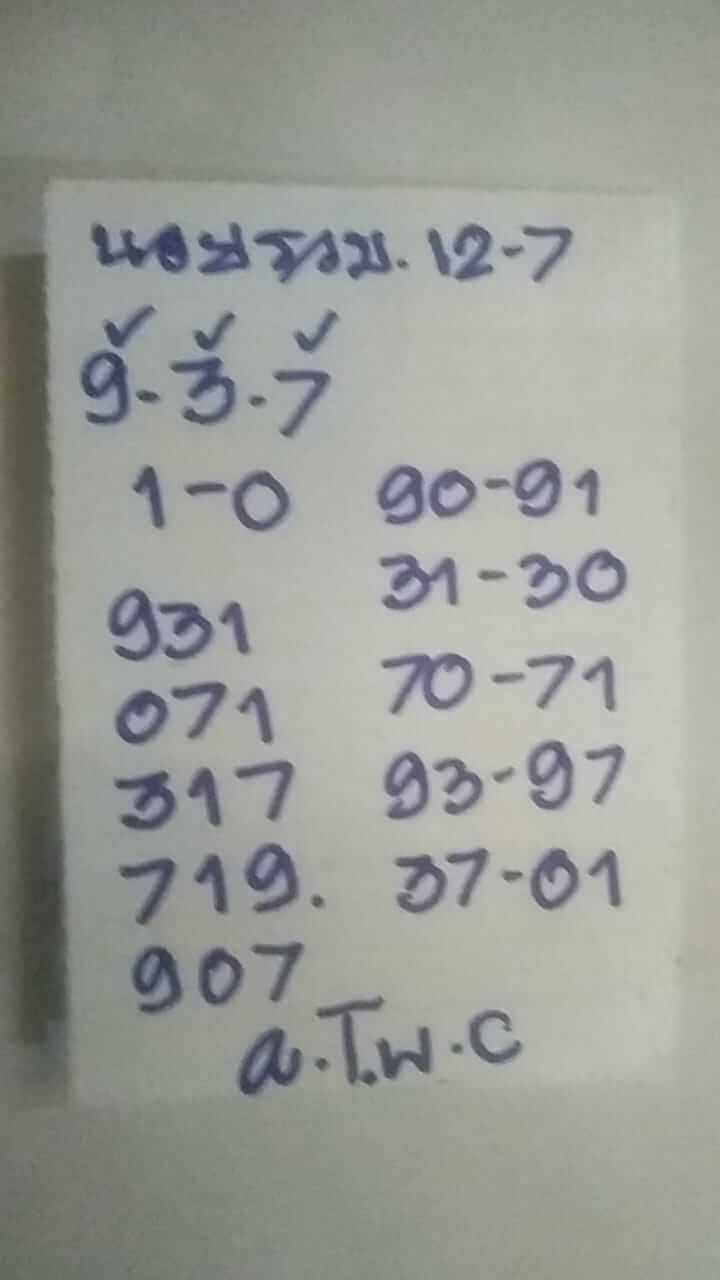 นอยรวม. 12-7
9-3-7
1-0
90-91
31-30
931
071
70-71
317
93-97
719.
37-01
907
a.T.w.c